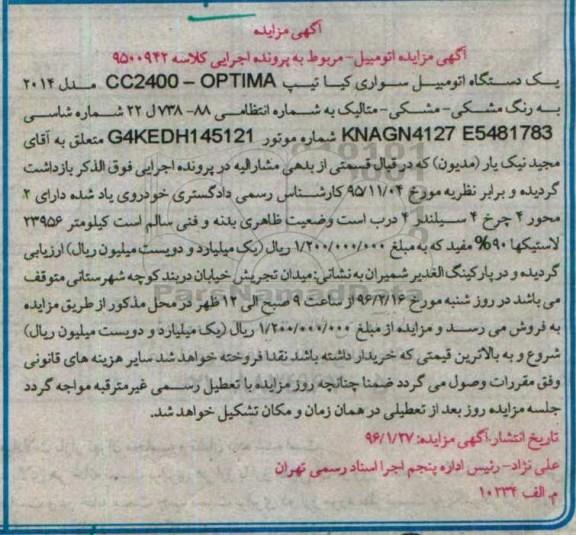 آگهی مزایده
آگهی مزایده اتومبیل- مربوط به پرونده اجرایی کلاسه ۹۵۰۰۹۴۲
یک دستگاه اتومبیل سواری کیا تیپ CC2400 – OPTIMA مدل ۲۰۱۴
به رنگ مشکی- مشکی- متالیک به شماره انتظامی ۸۸- ۷۳۸ل ۲۲ شماره شاسی
KNAGN4127 E5481783 شماره موتور G4KEDH145121 متعلق به آقای
مجید نیک یار (مدیون) که در قبال قسمتی از بدهی مشارالیه در پرونده اجرایی فوق الذکر بازداشت
گردیده و برابر نظریه مورخ ۹۵/۱۱/۰۴ کارشناس رسمی دادگستری خودروی یاد شده دارای ۲
محور ۴ چرخ ۴ سیلندر ۴ درب است وضعیت ظاهری بدنه و فنی سالم است کیلومتر ۲۳۹۵۶
لاستیکها ۹۰% مفید که به مبلغ ۱/۲۰۰/۰۰۰/۰۰۰ ریال (یک میلیارد و دویست میلیون ریال) ارزیابی
گردیده و در پارکینگ الغدیر شمیران به نشانی: میدان تجریش خیابان دربند کوچه شهرستانی متوقف
می باشد در روز شنبه مورخ ۹۶/۲/۱۶ از ساعت ۹ صبح الی ۱۲ ظهر در محل مذکور از طریق مزایده
به فروش می رسد و مزایده از مبلغ ۱/۲۰۰/۰۰۰/۰۰۰ ریال (یک میلیارد و دویست میلیون ریال)
شروع و به بالاترین قیمتی که خریدار داشته باشد نقدا فروخته خواهد شد سایر هزینه های قانونی
وفق مقررات وصول می گردد ضمنا چنانچه روز مزایده با تعطیل رسمی غیرمترقبه مواجه گردد
جلسه مزایده روز بعد از تعطیلی در همان زمان و مکان تشکیل خواهد شد.
تاریخ انتشار آگهی مزایده: ۹۶/۱/۲۷
علی نژاد- رئیس اداره پنجم اجرا اسناد رسمی تهران
م. الف ۱۰۲۳۴